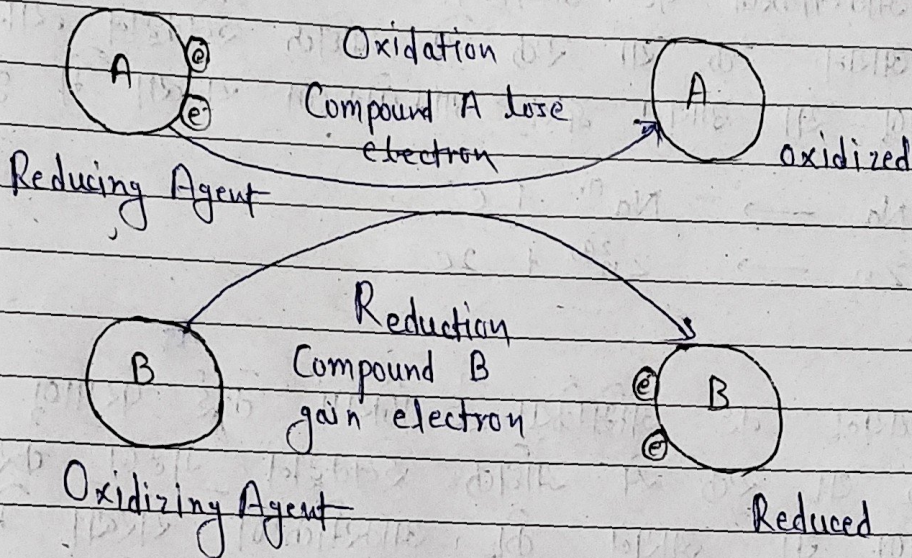 A
e
e
Oxidation
Compound A lose
electron
A
oxidized
Reducing Agent
B
Reduction
Compound B
gain electron
e
e
B
Oxidizing Agent
Reduced